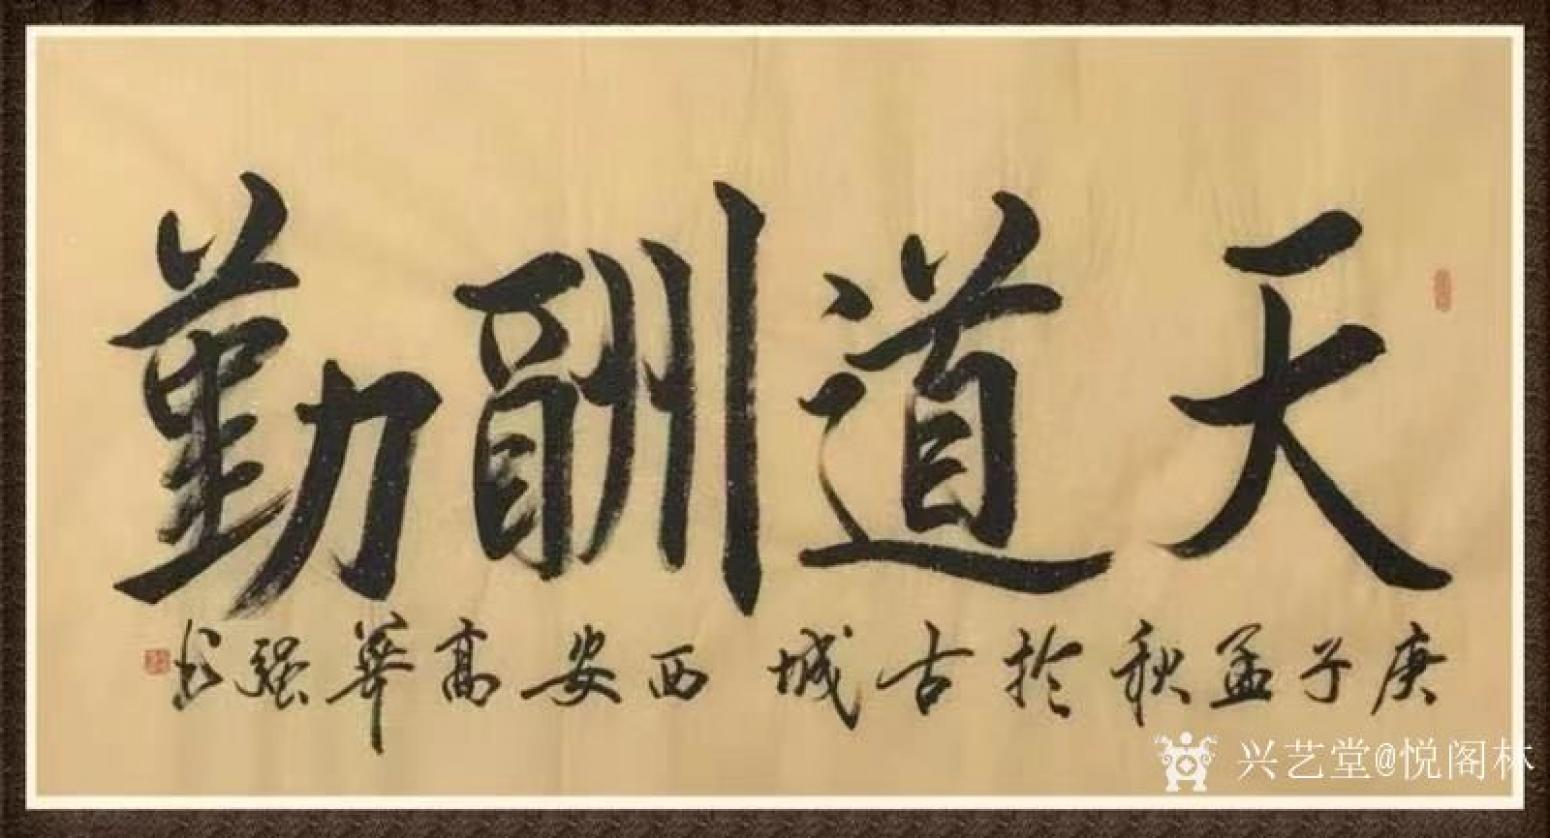 天道酬勤
庚子孟秋於古城西安高華強书
兴艺堂@悦阁林